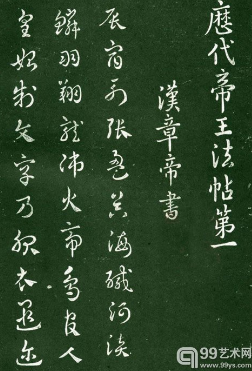 歷代帝王法帖第一
漢章帝書
辰宿列張盈昃海鹹河淡
鱗羽翔龍師火帝鳥官人
皇始制文字乃服衣遐迩
99艺术网
www.99ys.com